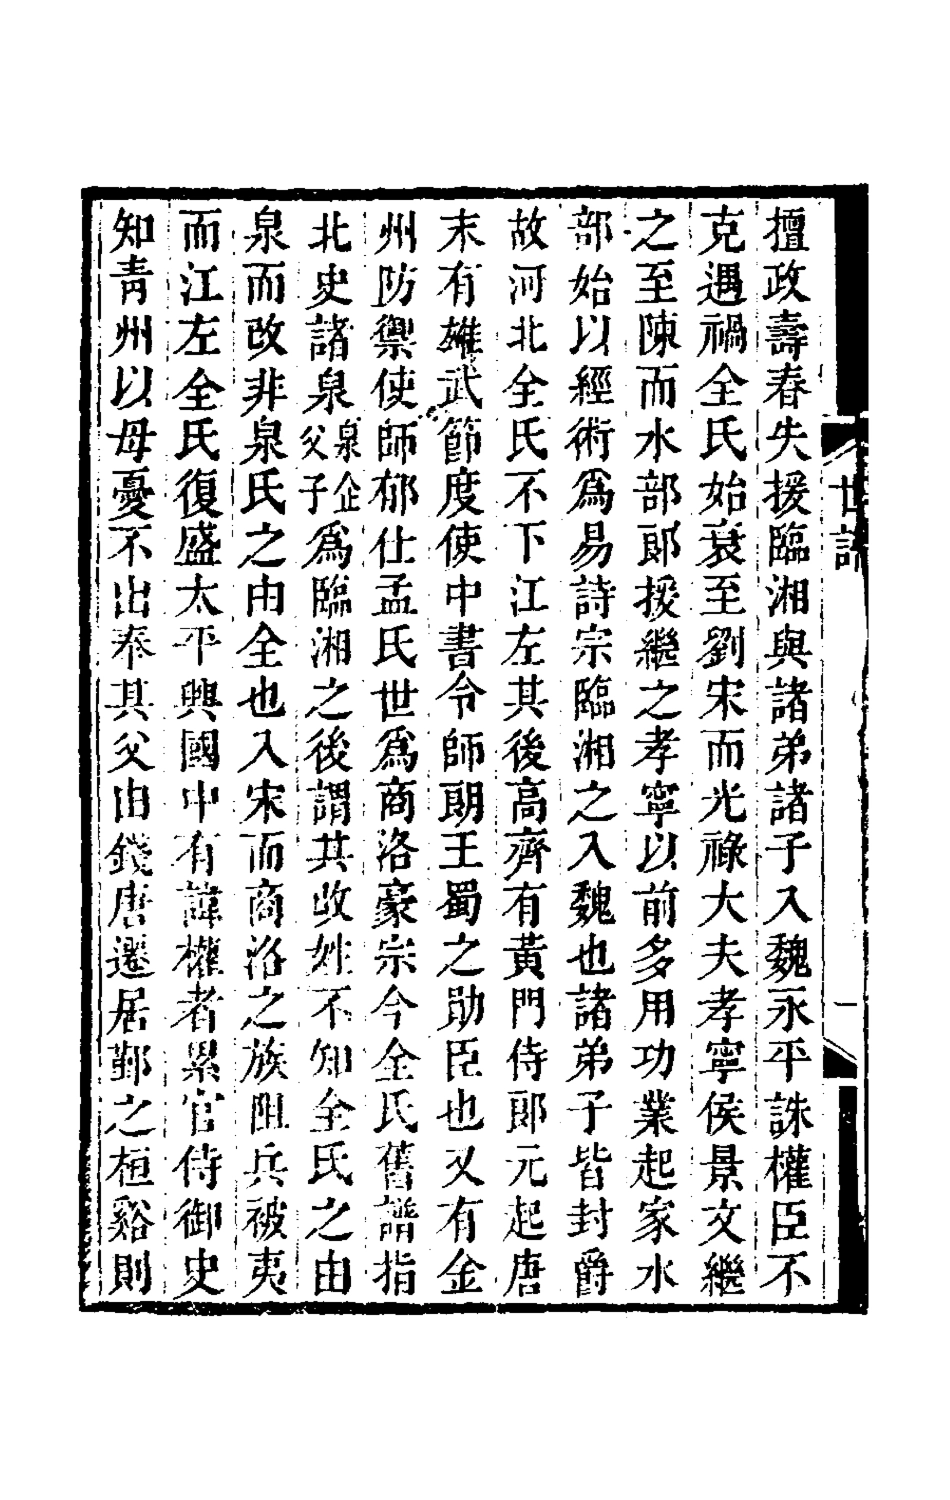 擅政壽春失援臨湘與諸弟諸子入魏永平誅權臣不
克遇禍全氏始衰至劉宋而光祿大夫孝寧侯景文繼
之至陳而水部郎援繼之孝寧以前多用功業起家水
部始以經術爲易詩宗臨湘之入魏也諸弟子皆封爵
故河北全氏不下江左其後高齊有黃門侍郎元起唐
末有雄武節度使中書令師朗王蜀之勛臣也又有金
州防禦使師郁仕孟氏世爲商洛豪宗今全氏舊譜指
北史諸泉泉企父子爲臨湘之後謂其收姓不知全氏之由
泉而改非泉氏之由全也入宋而商洛之族阻兵被夷
而江左全氏復盛太平興國中有諱權者累官侍御史
知青州以母憂不出奉其父由錢唐遷居鄞之桓谿則
世譜
一